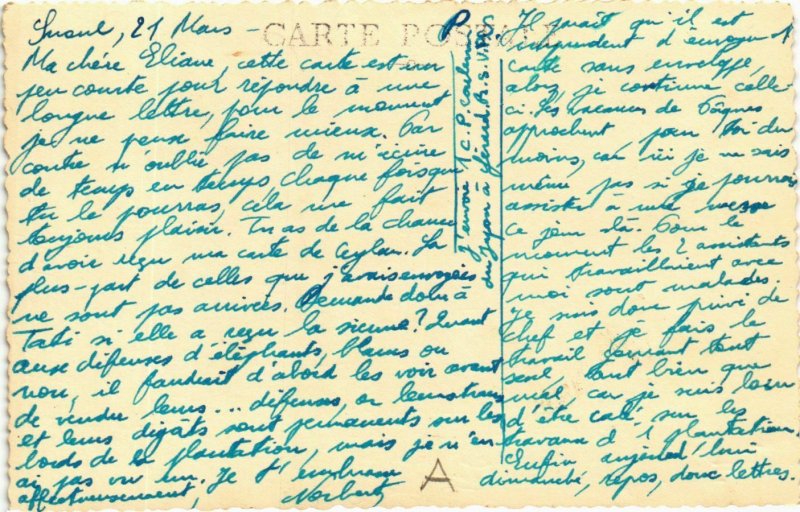 CARTE POSTALE
Susul, 21 Mars -
Ma chère Eliane, cette carte est un
peu courte pour répondre à une
longue lettre, pour le moment
je ne peux faire mieux. Par
contre n'oublie pas de m'écrire
de temps en temps, chaque fois que
tu le pourras, cela me fait
toujours plaisir. Tu as de la chance
d'avoir reçu ma carte de Ceylan. La
plus-part de celles que j'avais envoyées
ne sont pas arrivées. Demande donc à
Tati si elle a reçu la sienne? Quant
aux défenses d'éléphants, blancs ou
non, il faudrait d'abord les voir avant
de vendre leurs... défenses, or leurs traces
et leurs dégâts sont permanents sur les
bords de la plantation, mais je n'en
ai pas vu un. Je t'embrasse
affectueusement, Norbert
P.S.
J'envoie 1 C.P. couleurs
de Lyon à Gérard. R.S.V.P.
Il paraît qu'il est
imprudent d'envoyer 1
carte sans enveloppe,
alors, je continue celle-
ci. Les vacances de Pâques
approchent pour toi du
moins, car ici je ne sais
même pas si je pourrai
assister à une messe
ce jour là. Pour le
moment les 2 assistants
qui travaillaient avec
moi sont malades
Je suis donc privé de
chef et je fais le
travail courant tout
seul tant bien que
mal car je suis loin
d'être calé sur les
travaux d'1 plantation.
Enfin aujourd'hui
dimanche, repos, donc lettres.
A